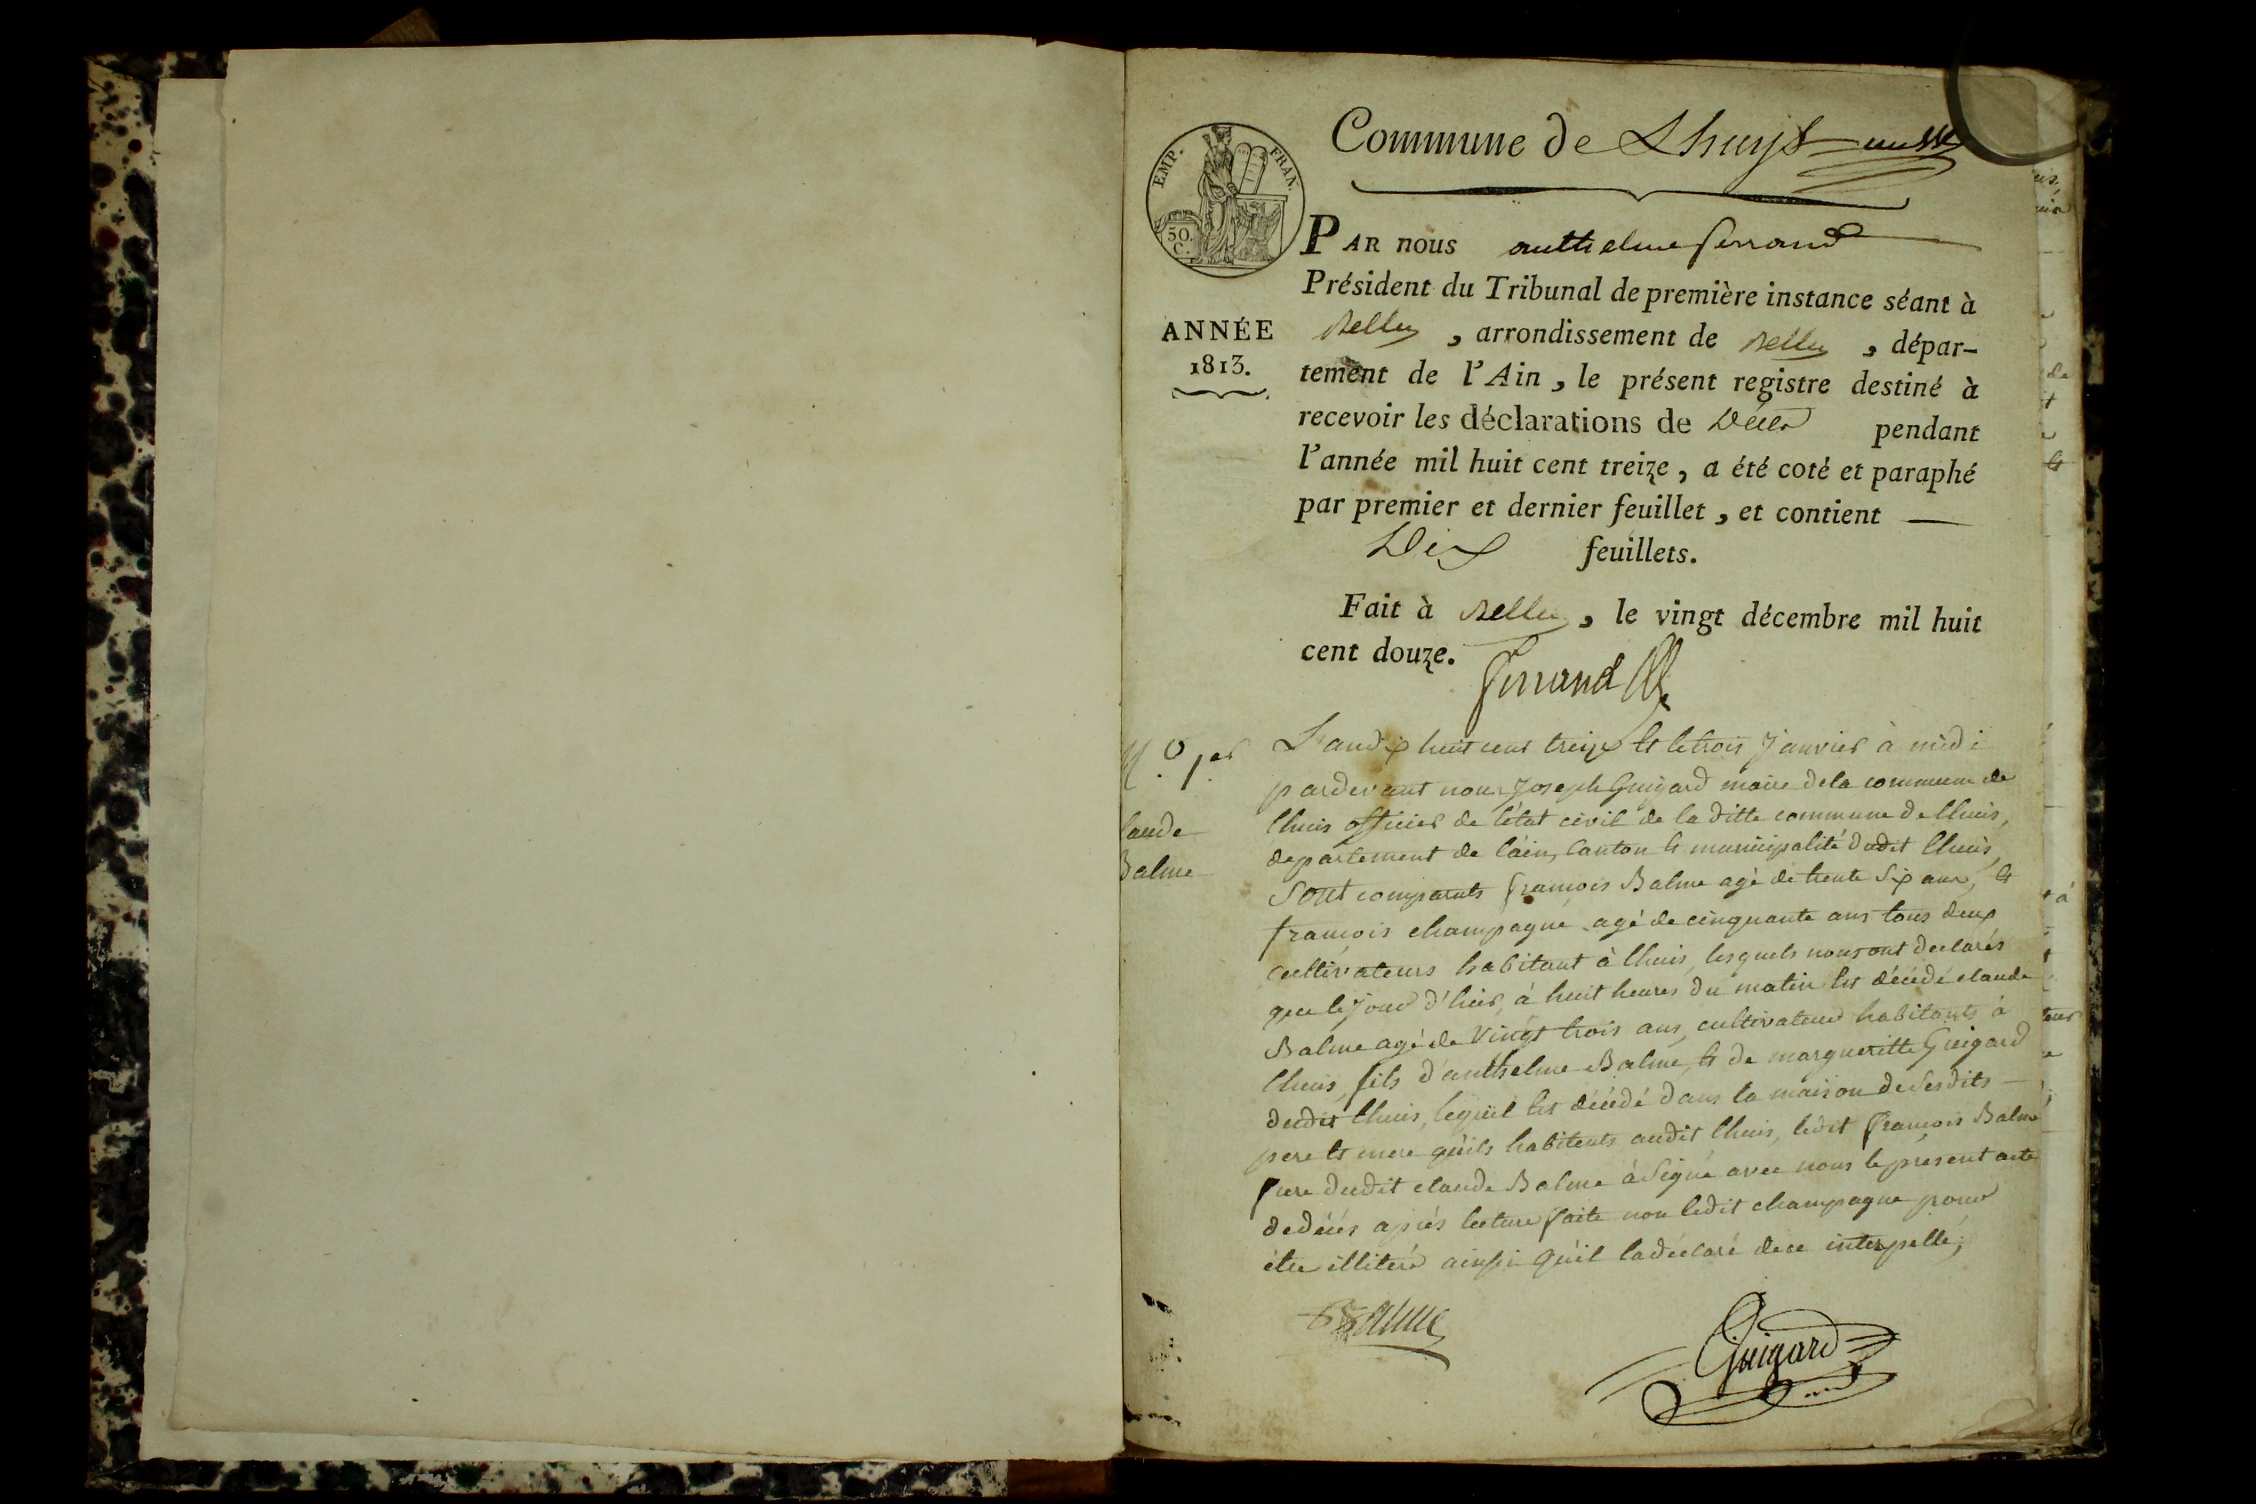 Commune de Lhuys
EMP. FRAN.
50.
C.
PAR nous anthelme ferrand
Président du Tribunal de première instance séant à
ANNÉE
1813.
Belley, arrondissement de Belley, dépar-
tement de l'Ain, le présent registre destiné à
recevoir les déclarations de Décès pendant
l'année mil huit cent treize, a été coté et paraphé
par premier et dernier feuillet, et contient —
Dix feuillets.
Fait à Belley, le vingt décembre mil huit
cent douze.
ferrand
N.º 1.er
laude
Balme
L'an dix huit cent treize et le trois janvier à midi
pardevant nous Joseph Guigard maire dela commune de
lhuis officier de l'état civil de la ditte commune de lhuis,
departement de l'ain, Canton et municipalité dudit lhuis,
Sont comparuts françois Balme agé de trente Six ans, et
françois champagne agé de cinquante ans tous deux
cultivateurs habitant à lhuis, lesquels nous ont declarés
que le jour d'hier, à huit heures du matin est décédé claude
Balme agé de Vingt trois ans, cultivateur habitants à
lhuis, fils d'anthelme Balme, et de margueritte Guigard
dudit lhuis, lequel est décédé dans la maison de Sesdits —
pere et mere qu'ils habitents audit lhuis, ledit françois Balme
frere dudit claude Balme à Signé avec nous le présent acte
dedécés aprés lecture faite non ledit champagne pour
être illiteré ainsi qu'il la déclaré dece interpellé;
Balme
Guigard